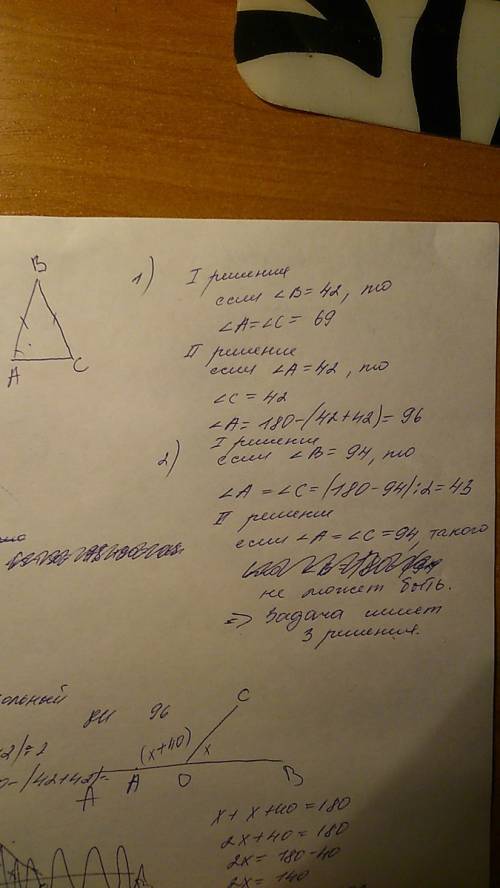 B
A
C
1) I решения
если ∠B=42, то
∠A=∠C= 69
II решение
если ∠A=42, то
∠C = 42
∠A=180-(42+42)=96
2) I решения
если ∠B= 94, то
∠A =∠C=(180-94):2=43
II решения
если ∠A=∠C=94 такого
не может быть.
=> Задача имеет
3 решения.
ольный
96
42):2
0-(42+42)=
C
(x+40)
x
A
A
O
B
x+x+40=180
2x+40=180
2x= 180-40
2x= 140